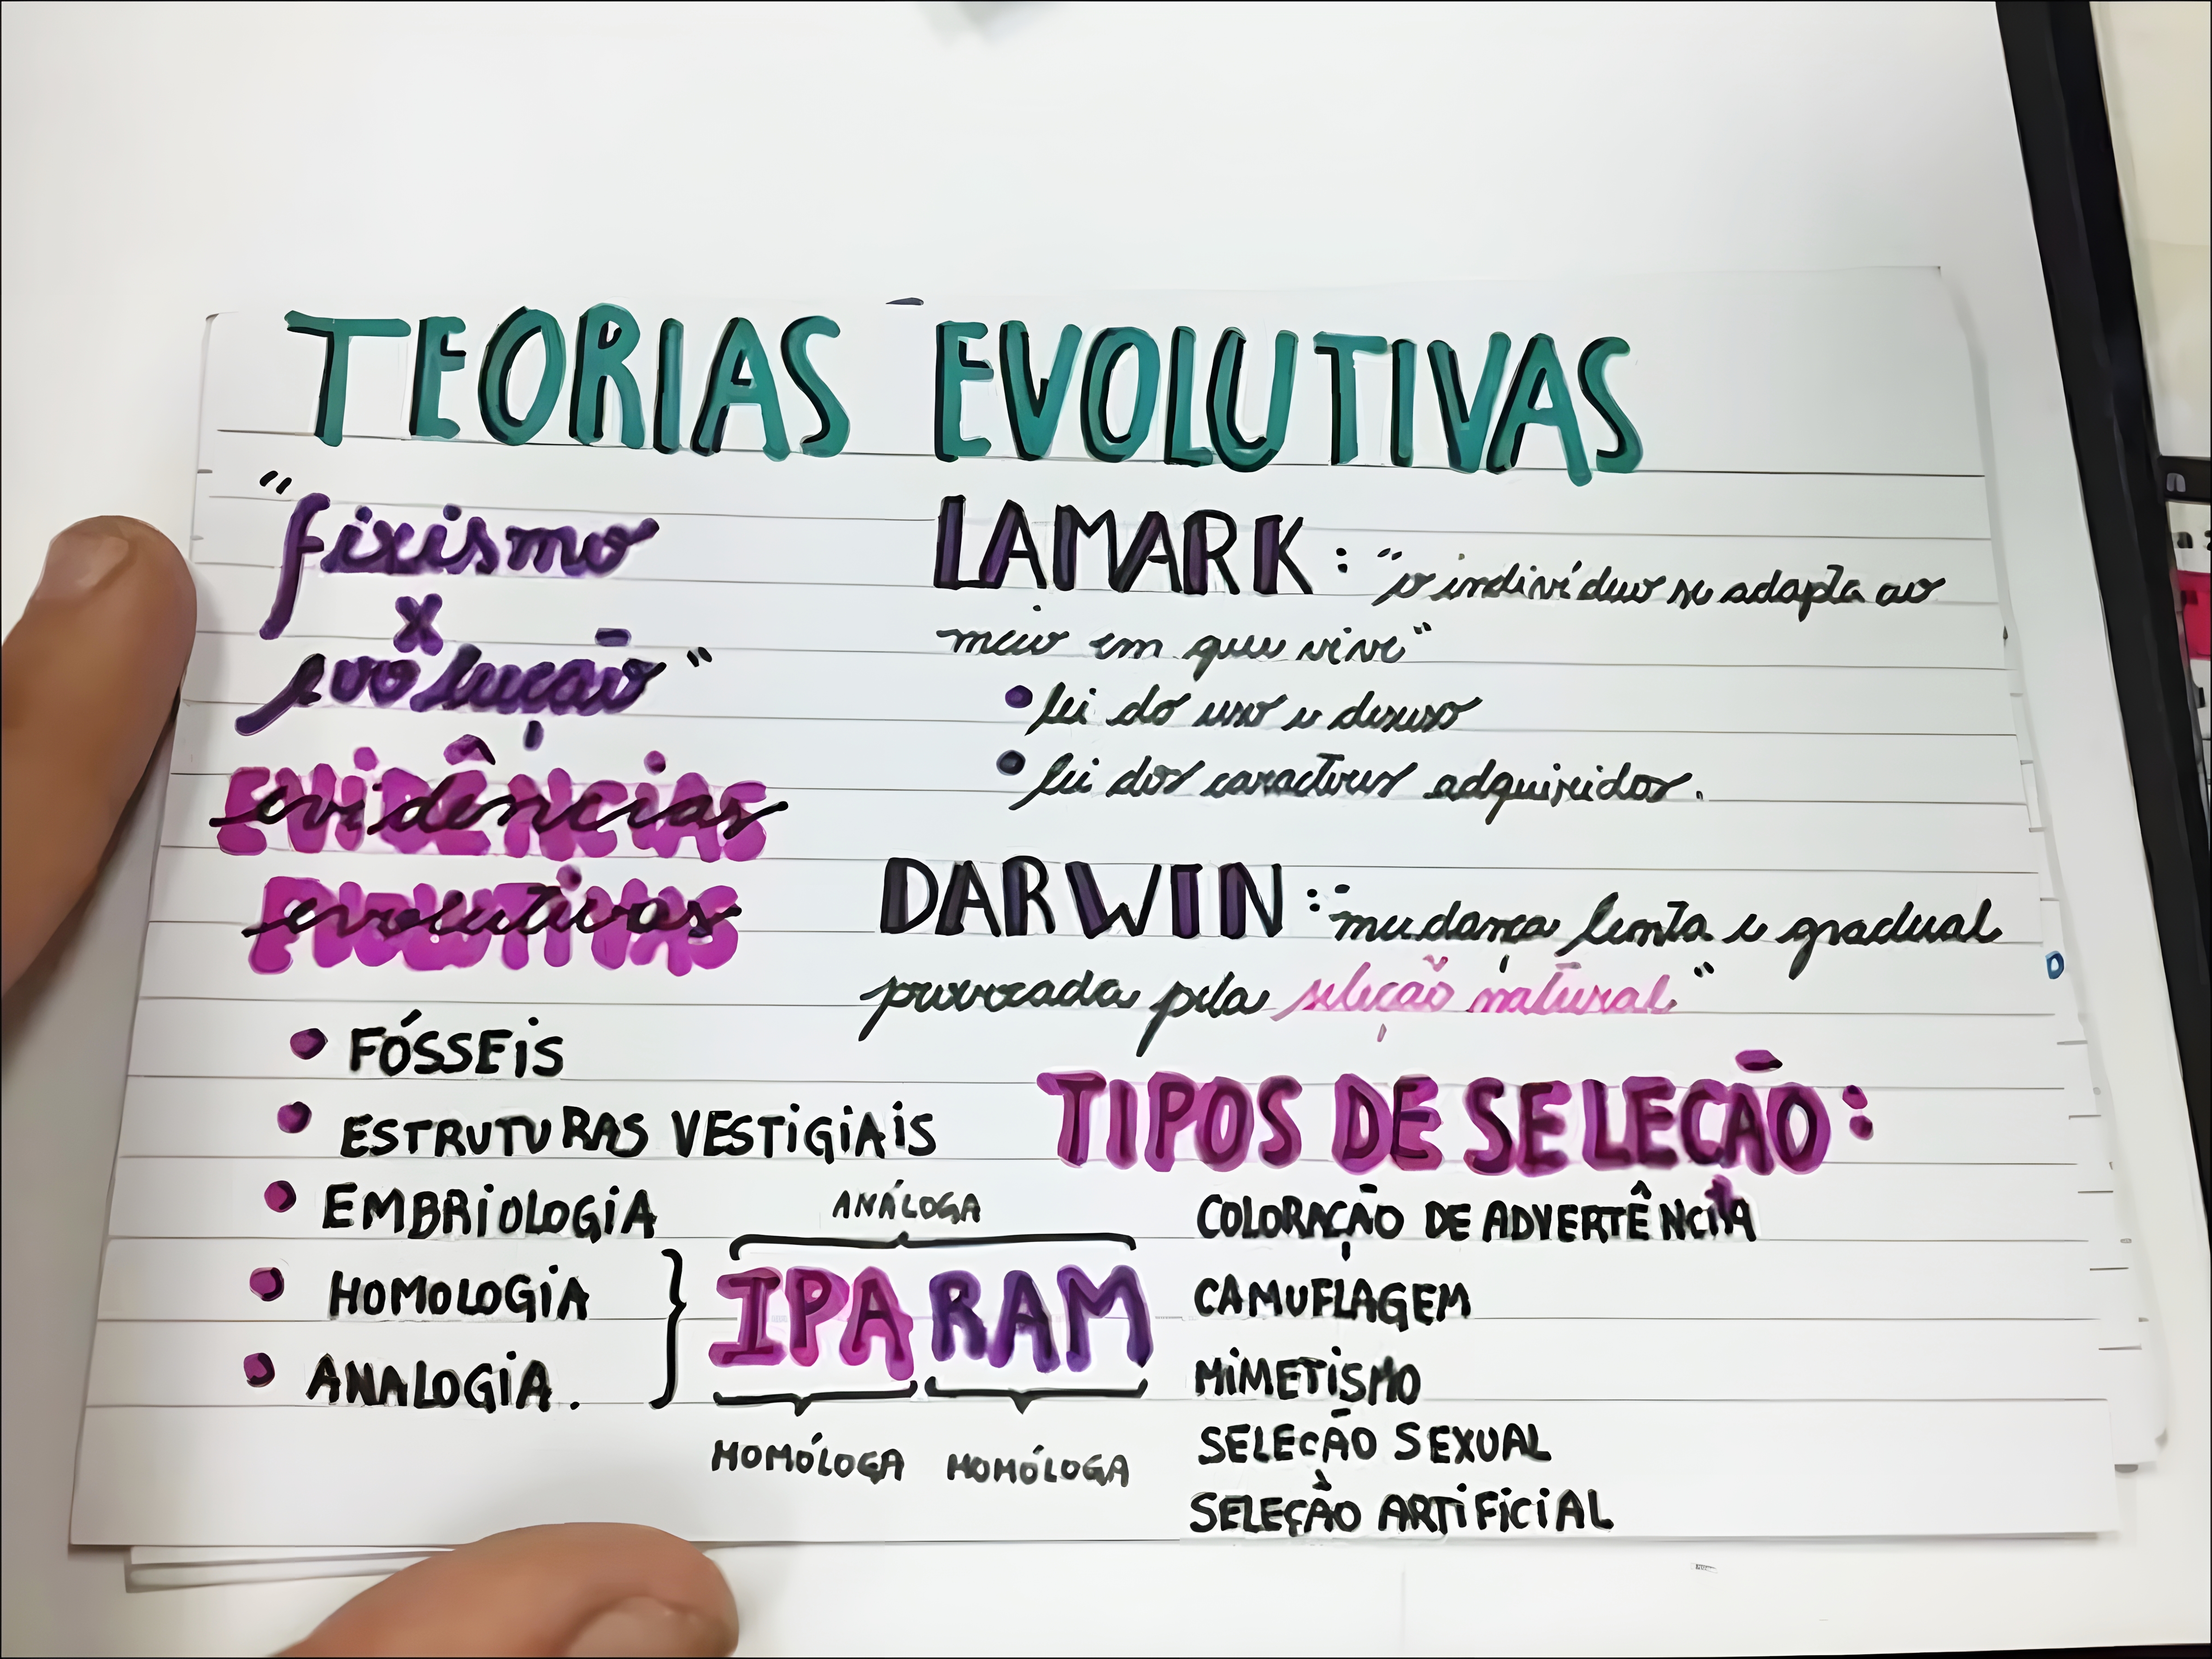 TEORIAS EVOLUTIVAS
"fixismo
x
evolução"
evidências
evolutivas
• FÓSSEIS
• ESTRUTURAS VESTIGIAIS
• EMBRIOLOGIA
• HOMOLOGIA
• ANALOGIA.
ANÁLOGA
IPARAM
HOMÓLOGA HOMÓLOGA
LAMARK: "o indivíduo se adapta ao
meio em que vive"
• lei do uso e desuso
• lei dos caracteres adquiridos.
DARWIN: mudança lenta e gradual
provocada pela seleção natural"
TIPOS DE SELEÇÃO:
COLORAÇÃO DE ADVERTÊNCIA
CAMUFLAGEM
MIMETISMO
SELEÇÃO SEXUAL
SELEÇÃO ARTIFICIAL